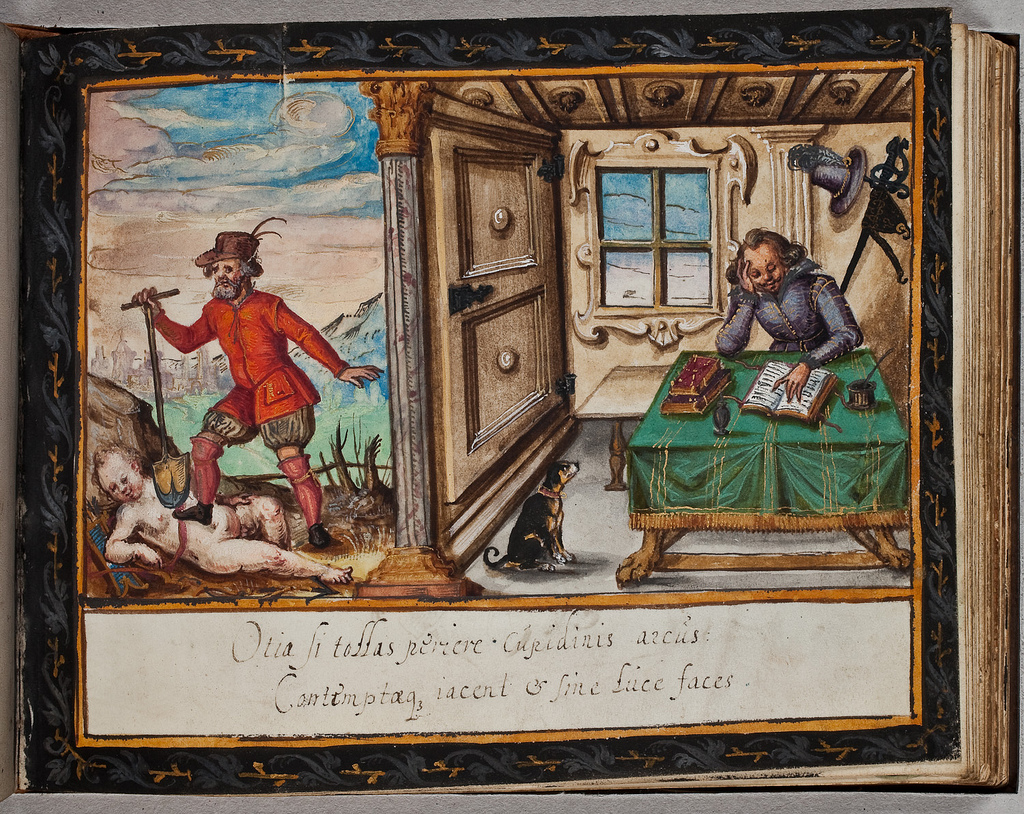 Otia si tollas periere Cupidinis arcus:
Contemptæq₃ iacent & sine Luce faces.